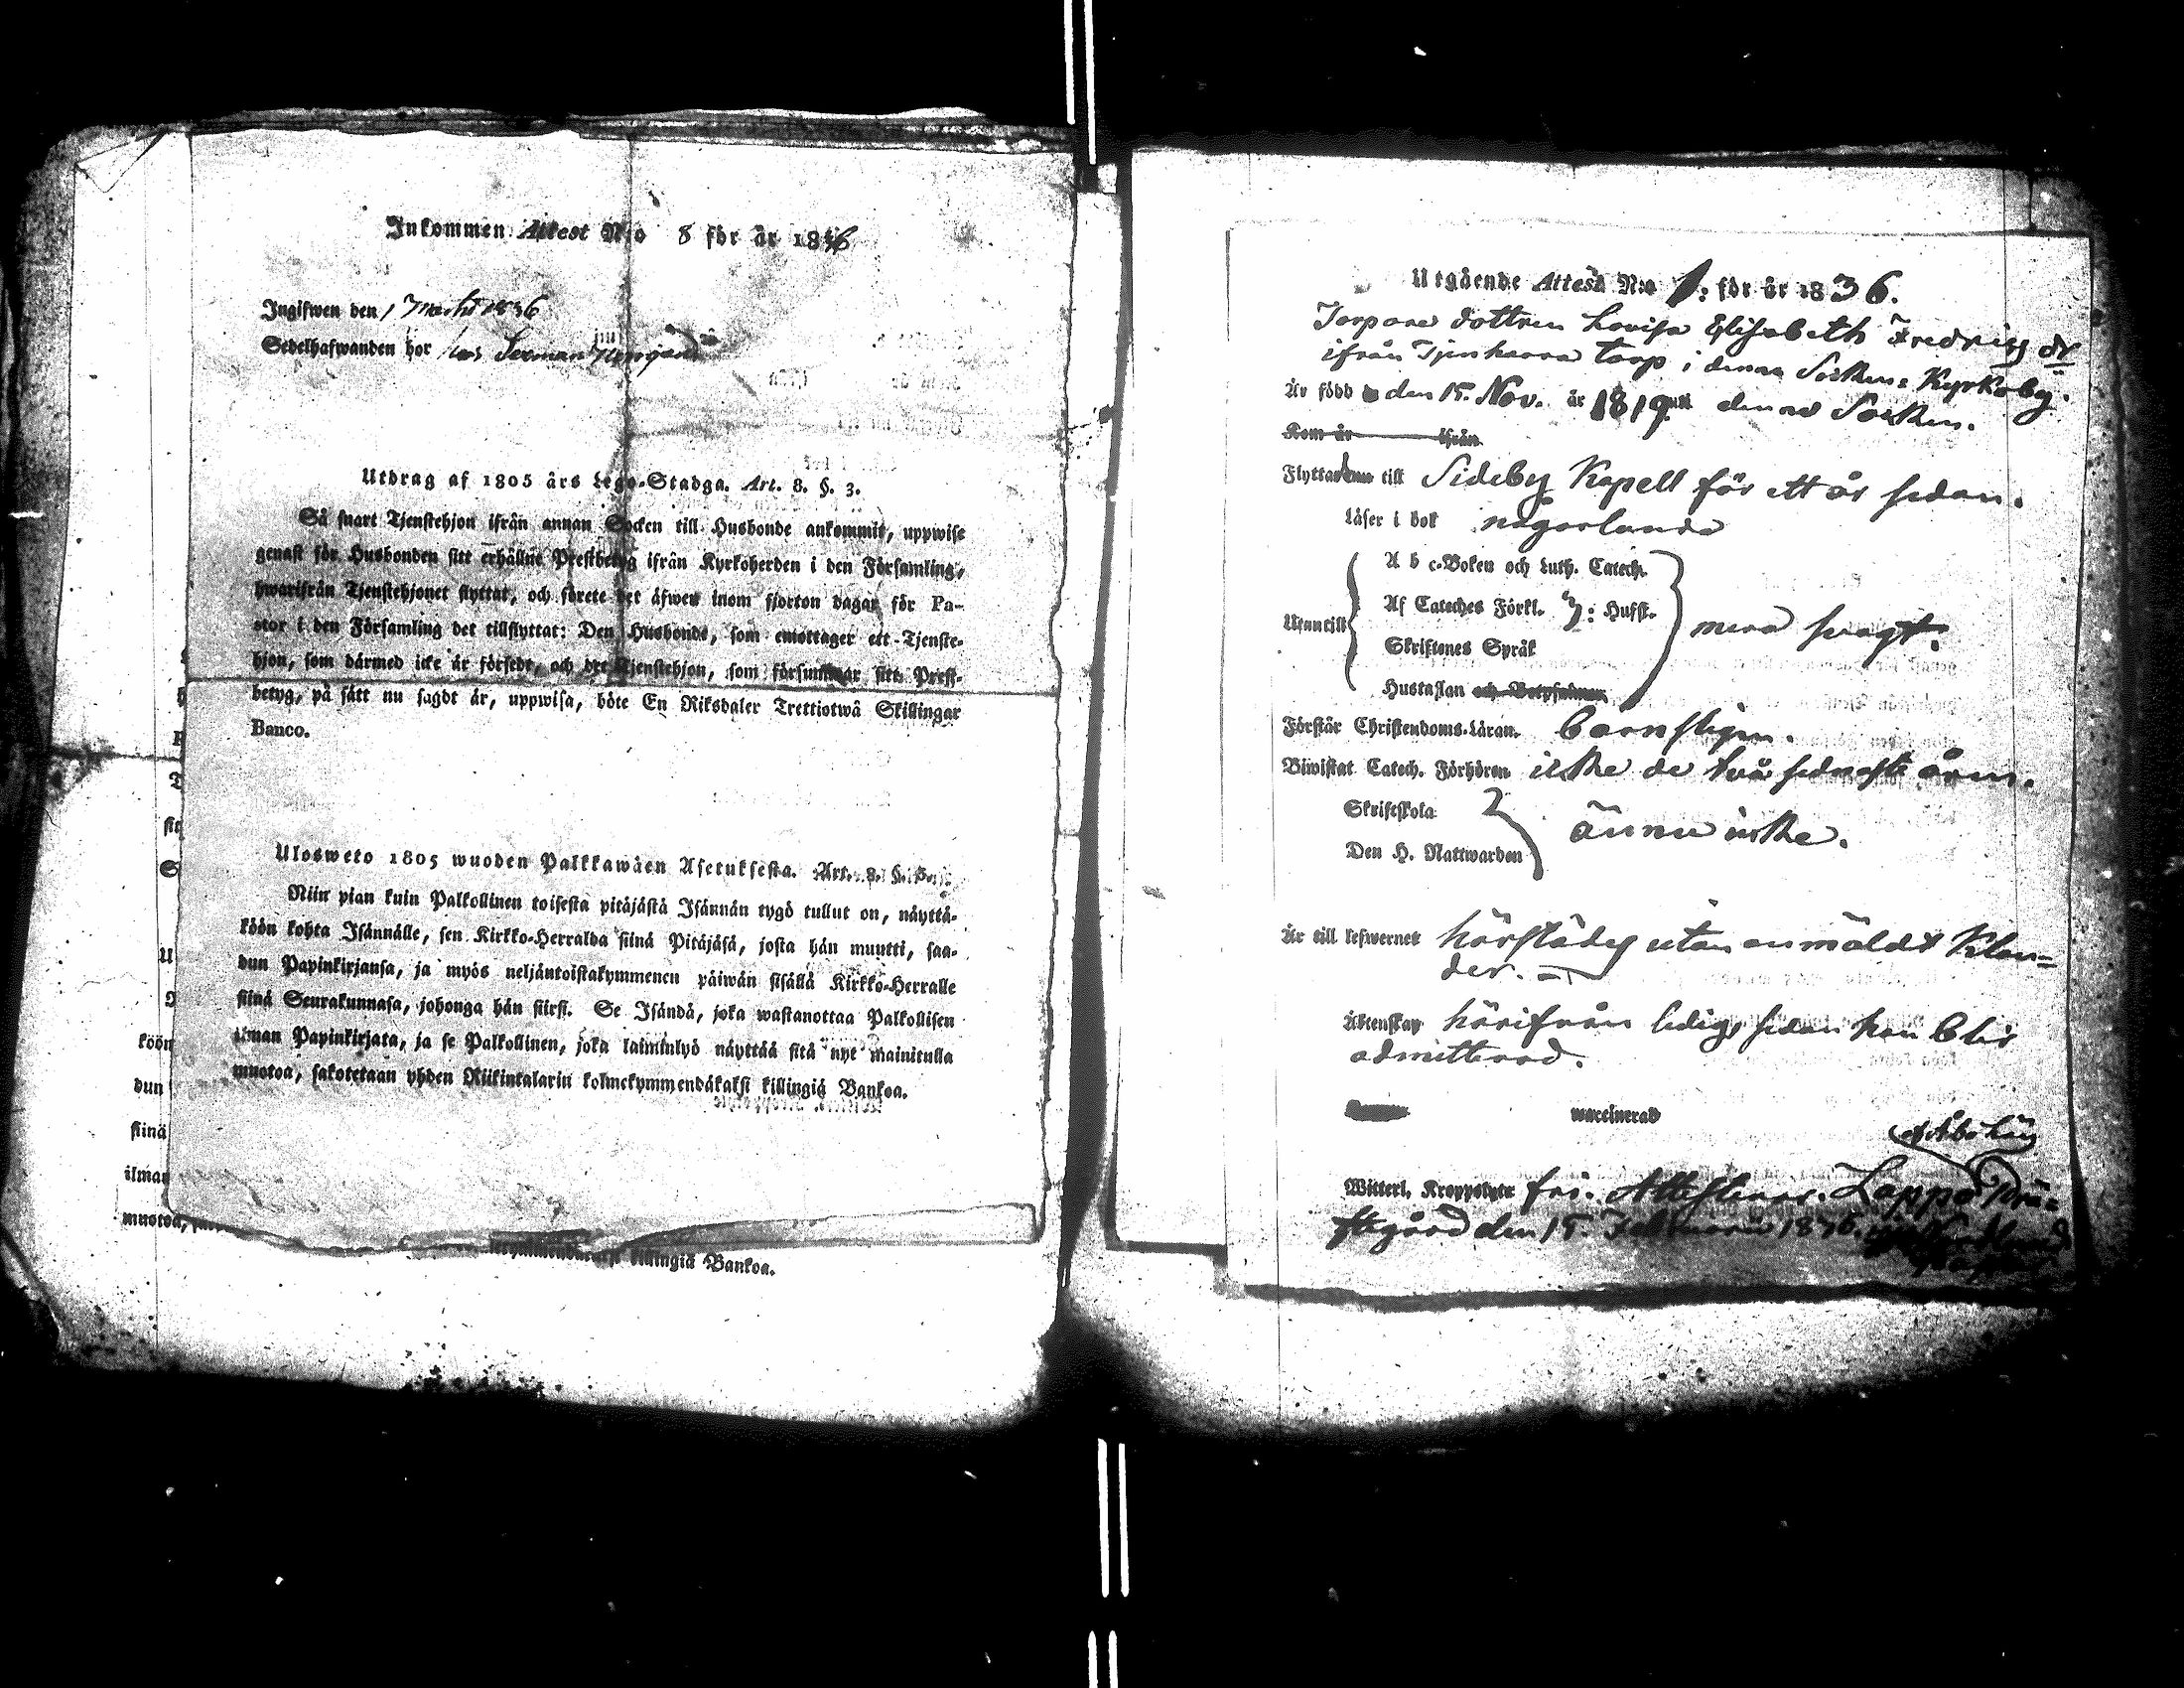 Inkommen Attest N:o 8 för år 1836
Ingifwen den 1 Martii 1836
Sedelhafwanden bor hos
Utdrag af 1805 års Lego-Stadga. Art. 8. §. 3.
Så snart Tjenstehjon ifrån annan Socken till Husbonde ankommit, uppwise
genast för Husbonden sitt erhållne Prestbetyg ifrån Kyrkoherden i den Församling,
hwarifrån Tjenstehjonet flyttat, och förete det äfwen inom fjorton dagar för Pa-
stor i den Församling det tillflyttat: Den Husbonde, som emottager ett Tjenste-
hjon, som därmed icke är försedt, och det Tjenstehjon, som försummar sitt Prest-
betyg, på sätt nu sagdt är, uppwisa, böte En Riksdaler Trettiotwå Skillingar
Banco.
Ulosweto 1805 wuoden Palkkawäen Asetuksesta. Art. 8. §. 3.
Niin pian kuin Palkollinen toisesta pitäjästä Isännän tygö tullut on, näyttä-
köön kohta Isännälle, sen Kirkko-Herralda siinä Pitäjäsä, josta hän muutti, saa-
dun Papinkirjansa, ja myös neljäntoistakymmenen päiwän sisällä Kirkko-Herralle
siinä Seurakunnasa, johonga hän siirsi. Se Isändä, joka wastanottaa Palkollisen
ilman Papinkirjata, ja se Palkollinen, joka laiminlyö näyttää sitä nyt mainitulla
muotoa, sakotetaan yhden Riikintalarin kolmekymmendäkaksi killingiä Bankoa.
köön
dun
siinä
ilman
muotoa,
killingiä Bankoa.
Utgående Attest N:o 1: för år 1836.
Torpare dottren Lovisa Elisabeth Fredrics dr
ifrån torp i denna Sockens Kyrkoby.
Är född den 15. Nov. år 1819 uti denna Socken.
Kom år ifrån
Flyttade till Sideby Kapell för ett år sedan.
Läser i bok någorlunda
A b c-Boken och Luth. Catech.
Af Cateches Förkl. Hufst.
Utantill
Skriftenes Språk
mera svagt.
Hustaflan och
Förstår Christendoms-Läran. barnsligen.
Biwistat Catech. Förhören icke de två sednaste åren.
Skriftskola
ännu icke.
Den H. Nattwarden
Är till lefwernet härstädes utan anmäldt klan-
der.
Äktenskap härifrån ledig, sedan hon blir
admitterad.
waccinerad
Witterl. Kroppslyte fri. Attesteras. Lappo Prä-
stgård den 15. Februarii 1836.